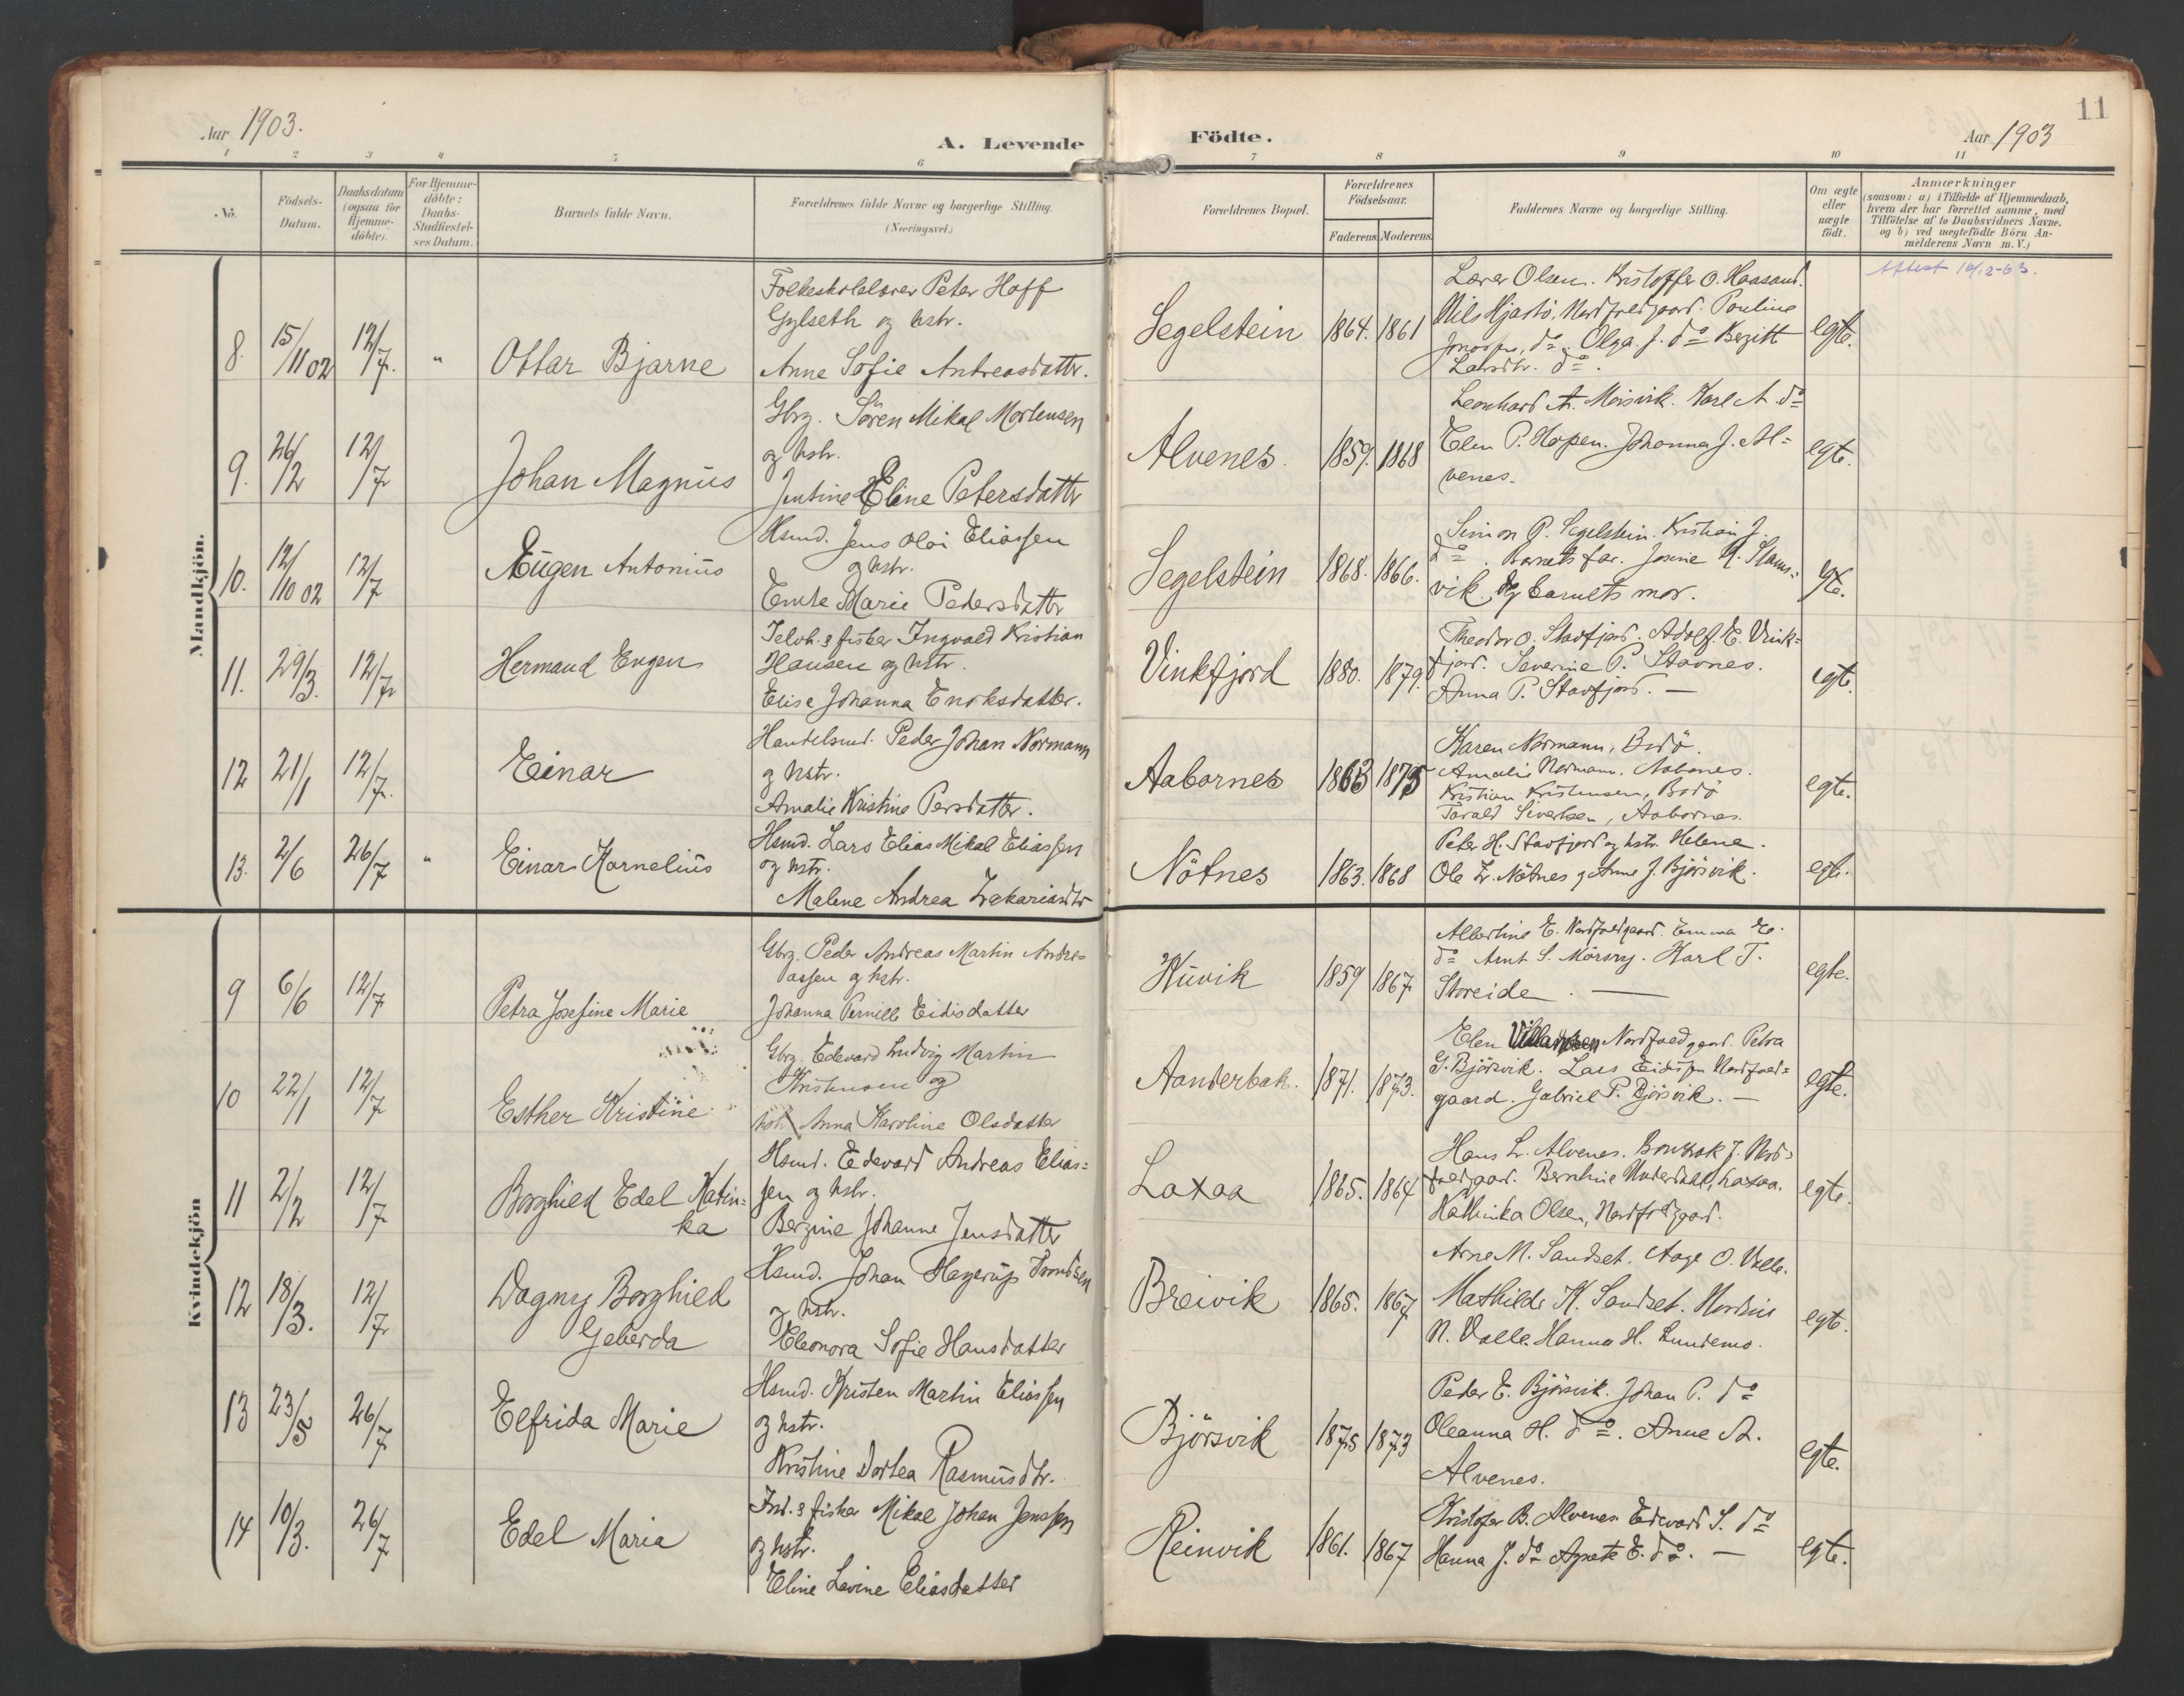 Aar 1903.
A. Levende
Födte.
Aar 1903
11
1 2 3 4 5 6 7 8 9 10 11
No.
Födsels-
Datum.
Daabsdatum
(ogsaa for
Hjemme-
döbte).
For Hjemme-
döbte:
Daabs-
Stadfæstel-
ses Datum.
Barnets fulde Navn.
Forældrenes fulde Navne og borgerlige Stilling.
(Næringsvei.)
Forældrenes Bopæl.
Forældrenes
Födselsaar.
Faderens. Moderens.
Faddernes Navne og borgerlige Stilling.
Om ægte
eller
uægte
födt.
Anmærkninger
(saasom: a) i Tilfælde af Hjemmedaab,
hvem der har forrettet samme, med
Tilföielse af to Daabsvidners Navne,
og b) ved uægtefödte Börn An-
melderens Navn m. V.)
Mandkjön.
8. 15/11 02 12/7. " Ottar Bjarne
Folkeskolelærer Peter Hoff
Gylseth og hstr.
Anne Sofie Andreasdattr.
Segelstein 1864. 1861
Lærer Olsen. Kristoffer O. Haasand.
Nils Hjartö, Nordfoldgaard. Pauline
do. Olga J. do Bergitt
Larsdtr. do.
egte.
Attest
9. 26/2 12/7 Johan Magnus
Gbrg. Sören Mikal Mortensen
og hstr.
Jentine Eline Petersdattr
Alvenes 1859. 1868
Leonhard A. Mörsvik. Karl A. do
Elen P. Hopen. Johanna J. Al=
venes.
egte.
10. 12/10 02 12/7 Eugen Antonius
Hsmd. Jens Olai Eliassen
og hstr.
Emte Marie Pedersdattr
Segelstein 1868. 1866.
Simon P. Segelstein. Kristian J.
do. Barnets far. Josine M.
vik og barnets mor.
egte.
11. 29/3. 12/7 Hermand Eugen
Selvh. & fisker Ingvald Kristian
Hansen og hstr.
Elise Johanna Enoksdatter.
Vinkfjord 1880. 1879.
Theodor O. Stavfjord. Adolf E. Vink=
fjord. Severine P. Stavnes.
Anna P. Stavfjord. —
egte.
12 21/1 12/7. Einar
Handelsmd. Peder Johan Normann
og hstr.
Amalie Kristine Persdatter.
Aabornes 1863 1875
Karen Normann, Bodö.
Amalie Normann. Aabornes.
Kristian Kristensen, Bodö
Torald Sivertsen, Aabornes.
egte.
13. 2/6 26/7 " Einar Kornelius
Hsmd. Lars Elias Mikal Eliassen
og hstr.
Malene Andrea Zakariasdtr
Nötnes 1863. 1868
Peter H. Stavfjord og hstr. Helene.
Ole Z. Nötnes og Anne J. Björsvik.
egte.
Kvindekjön
9 6/6 12/7 Petra Josefine Marie
Gbrg. Peder Andreas Martin Andre=
assen og hstr.
Johanna Pernille Eidisdatter
Husvik 1859 1867
Albertine E. Nordfoldgaard. Emma E.
do Arnt S. Mörsry. Karl T.
Storeide. —
egte.
10 22/1 12/7 Esther Kristine
Gbrg. Edevard Ludvig Martin
Kristensen og
hstr. Anna Karoline Olsdatter
Aanderbak. 1871. 1873.
Elen Nordfoldgaard. Petra
G. Björsvik. Lars Eidissen Nordfold=
gaard. Gabriel P. Björsvik. —
egte.
11 2/2 12/7 Borghild Edel Katin=
ka
Hsmd. Edevard Andreas Elias=
sen og hstr.
Bergine Johanne Jensdattr
Laxaa 1865. 1864
Hans L. Alvenes. J. Nord=
foldgaard. Bernhine Underdahl, Laxaa.
Kathinka Olsen, Nordfoldgaard.
egte.
12 18/3. 12/7 Dagny Borghild
Geberda
Hsmd. Johan Hagerup Trondsen
og hstr.
Eleonora Sofie Hansdatter
Breivik 1865. 1867
Arne M. Sandset. Aage O. Valle.
Mathilde K. Sandset.
N. Valle. Hanna H. Lundemo.
egte.
13 23/5 26/7 Elfrida Marie
Hsmd. Kristen Martin Eliassen
og hstr.
Kristine Dortea Rasmusdtr.
Björsvik 1875 1873
Peder E. Björsvik. Johan P. do
Oleanna H. do. Anne A.
Alvenes.
egte.
14 10/3. 26/7 Edel Maria
Ind. & fisker Mikal Johan Jenssen
og hstr.
Eline Lovine Eliasdatter
Reinvik 1861. 1867
Kristofer B. Alvenes. Edevard S. do
Hanna J. do Agnete E. do. —
egte.